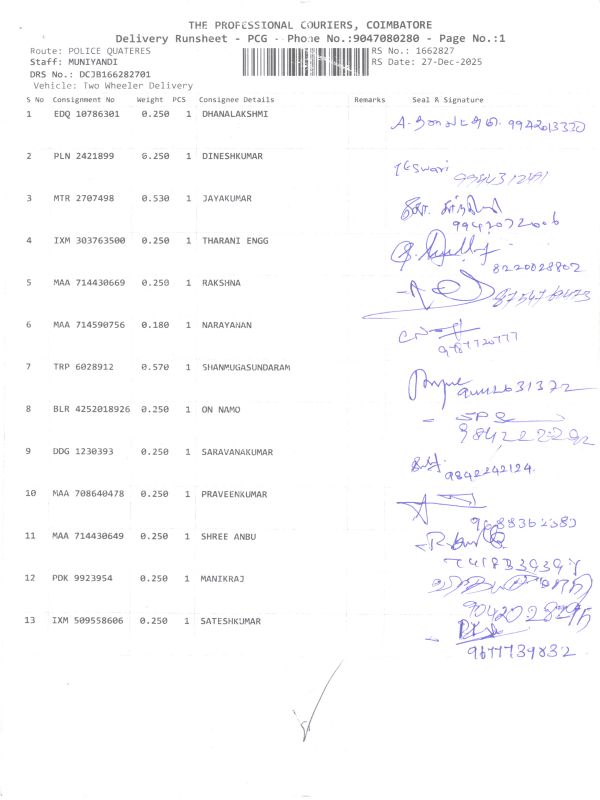 THE PROFESSIONAL COURIERS, COIMBATORE
Delivery Runsheet - PCG - Phone No.:9047080280 - Page No.:1
Route: POLICE QUATERES RS No.: 1662827
Staff: MUNIYANDI RS Date: 27-Dec-2025
DRS No.: DCJB166282701
Vehicle: Two Wheeler Delivery
S No Consignment No Weight PCS Consignee Details Remarks Seal & Signature
1 EDQ 10786301 0.250 1 DHANALAKSHMI 9942013320
2 PLN 2421899 0.250 1 DINESHKUMAR
3 MTR 2707498 0.530 1 JAYAKUMAR
9942072006
4 IXM 303763500 0.250 1 THARANI ENGG
8220028802
5 MAA 714430669 0.250 1 RAKSHNA
6 MAA 714590756 0.180 1 NARAYANAN
9787720777
7 TRP 6028912 0.570 1 SHANMUGASUNDARAM
8 BLR 4252018926 0.250 1 ON NAMO
9842222292
9 DDG 1230393 0.250 1 SARAVANAKUMAR
9842242124
10 MAA 708640478 0.250 1 PRAVEENKUMAR
11 MAA 714430649 0.250 1 SHREE ANBU
12 PDK 9923954 0.250 1 MANIKRAJ
13 IXM 509558606 0.250 1 SATESHKUMAR
9677739832